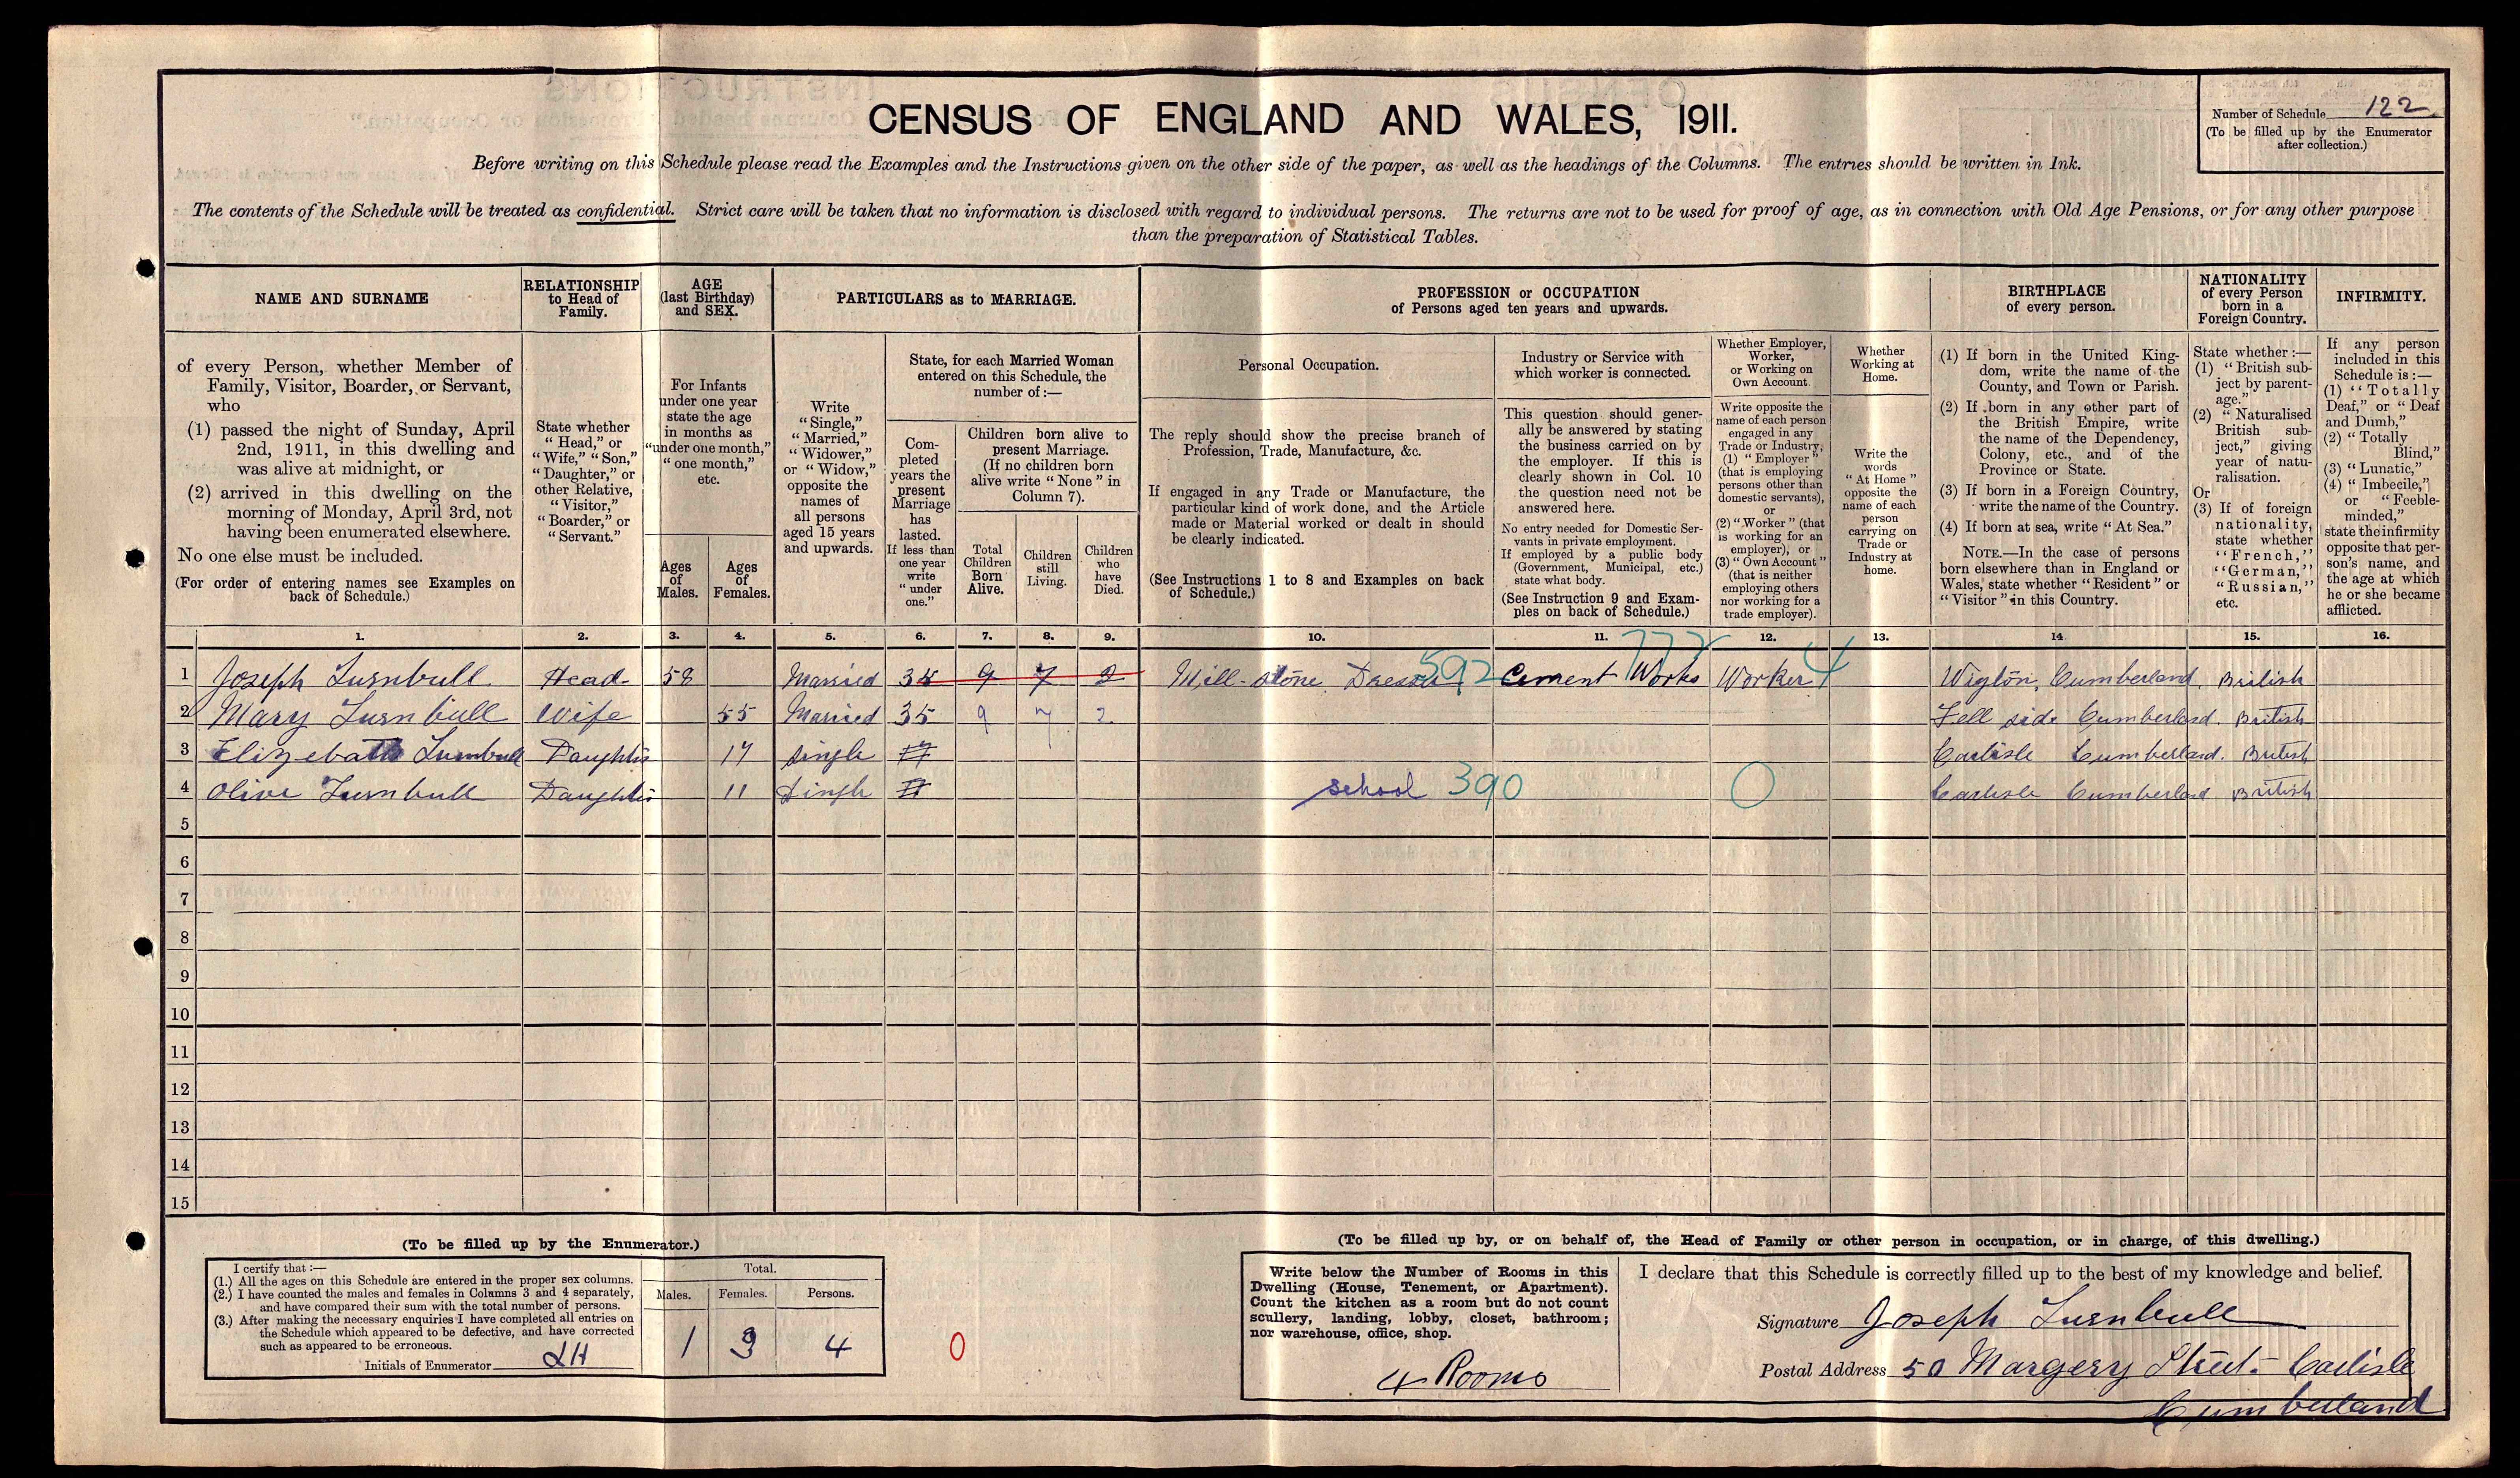 CENSUS OF ENGLAND AND WALES, 1911.
Number of Schedule 122
(To be filled up by the Enumerator
after collection.)
Before writing on this Schedule please read the Examples and the Instructions given on the other side of the paper, as well as the headings of the Columns. The entries should be written in Ink.
The contents of the Schedule will be treated as confidential. Strict care will be taken that no information is disclosed with regard to individual persons. The returns are not to be used for proof of age, as in connection with Old Age Pensions, or for any other purpose
than the preparation of Statistical Tables.
NAME AND SURNAME
of every Person, whether Member of
Family, Visitor, Boarder, or Servant,
who
(1) passed the night of Sunday, April
2nd, 1911, in this dwelling and
was alive at midnight, or
(2) arrived in this dwelling on the
morning of Monday, April 3rd, not
having been enumerated elsewhere.
No one else must be included.
(For order of entering names see Examples on
back of Schedule.)
RELATIONSHIP
to Head of
Family.
State whether
"Head," or
"Wife," "Son,"
"Daughter," or
other Relative,
"Visitor,"
"Boarder," or
"Servant."
AGE
(last Birthday)
and SEX.
For Infants
under one year
state the age
in months as
"under one month,"
"one month,"
etc.
Ages
of
Males.
Ages
of
Females.
PARTICULARS as to MARRIAGE.
Write
"Single,"
"Married,"
"Widower,"
or "Widow,"
opposite the
names of
all persons
aged 15 years
and upwards.
State, for each Married Woman
entered on this Schedule, the
number of:—
Com-
pleted
years the
present
Marriage
has
lasted.
If less than
one year
write
"under
one."
Children born alive to
present Marriage.
(If no children born
alive write "None" in
Column 7).
Total
Children
Born
Alive.
Children
still
Living.
Children
who
have
Died.
PROFESSION or OCCUPATION
of Persons aged ten years and upwards.
Personal Occupation.
The reply should show the precise branch of
Profession, Trade, Manufacture, &c.
If engaged in any Trade or Manufacture, the
particular kind of work done, and the Article
made or Material worked or dealt in should
be clearly indicated.
(See Instructions 1 to 8 and Examples on back
of Schedule.)
Industry or Service with
which worker is connected.
This question should gener-
ally be answered by stating
the business carried on by
the employer. If this is
clearly shown in Col. 10
the question need not be
answered here.
No entry needed for Domestic Ser-
vants in private employment.
If employed by a public body
(Government, Municipal, etc.)
state what body.
(See Instruction 9 and Exam-
ples on back of Schedule.)
Whether Employer,
Worker,
or Working on
Own Account.
Write opposite the
name of each person
engaged in any
Trade or Industry,
(1) "Employer"
(that is employing
persons other than
domestic servants),
or
(2) "Worker" (that
is working for an
employer), or
(3) "Own Account"
(that is neither
employing others
nor working for a
trade employer).
Whether
Working at
Home.
Write the
words
"At Home"
opposite the
name of each
person
carrying on
Trade or
Industry at
home.
BIRTHPLACE
of every person.
(1) If born in the United King-
dom, write the name of the
County, and Town or Parish.
(2) If born in any other part of
the British Empire, write
the name of the Dependency,
Colony, etc., and of the
Province or State.
(3) If born in a Foreign Country,
write the name of the Country.
(4) If born at sea, write "At Sea."
NOTE.—In the case of persons
born elsewhere than in England or
Wales, state whether "Resident" or
"Visitor" in this Country.
NATIONALITY
of every Person
born in a
Foreign Country.
State whether:—
(1) "British sub-
ject by parent-
age."
(2) "Naturalised
British sub-
ject," giving
year of natu-
ralisation.
Or
(3) If of foreign
nationality,
state whether
"French,"
"German,"
"Russian,"
etc.
INFIRMITY.
If any person
included in this
Schedule is:—
(1) "Totally
Deaf," or "Deaf
and Dumb,"
(2) "Totally
Blind,"
(3) "Lunatic,"
(4) "Imbecile,"
or "Feeble-
minded,"
state the infirmity
opposite that per-
son's name, and
the age at which
he or she became
afflicted.
1. 2. 3. 4. 5. 6. 7. 8. 9. 10. 11. 12. 13. 14 15. 16.
777
1 Joseph Turnbull Head 58 Married 35 9 7 2 Mill-stone Dresser 592 Cement Works Worker 4 Wigton, Cumberland. British
2 Mary Turnbull Wife 55 Married 35 9 7 2 Fell side Cumberland. British
3 Elizebath Turnbull Daughter 17 single Carlisle Cumberland. British
4 Olive Turnbull Daughter 11 Single school 390 0 Carlisle Cumberland British
5
6
7
8
9
10
11
12
13
14
15
(To be filled up by the Enumerator.)
I certify that:—
(1.) All the ages on this Schedule are entered in the proper sex columns.
(2.) I have counted the males and females in Columns 3 and 4 separately,
and have compared their sum with the total number of persons.
(3.) After making the necessary enquiries I have completed all entries on
the Schedule which appeared to be defective, and have corrected
such as appeared to be erroneous.
Initials of Enumerator LH
Total.
Males. Females. Persons.
1 3 4
0
(To be filled up by, or on behalf of, the Head of Family or other person in occupation, or in charge, of this dwelling.)
Write below the Number of Rooms in this
Dwelling (House, Tenement, or Apartment).
Count the kitchen as a room but do not count
scullery, landing, lobby, closet, bathroom;
nor warehouse, office, shop.
4 Rooms
I declare that this Schedule is correctly filled up to the best of my knowledge and belief.
Signature Joseph Turnbull
Postal Address 50 Margery Street Carlisle
Cumberland